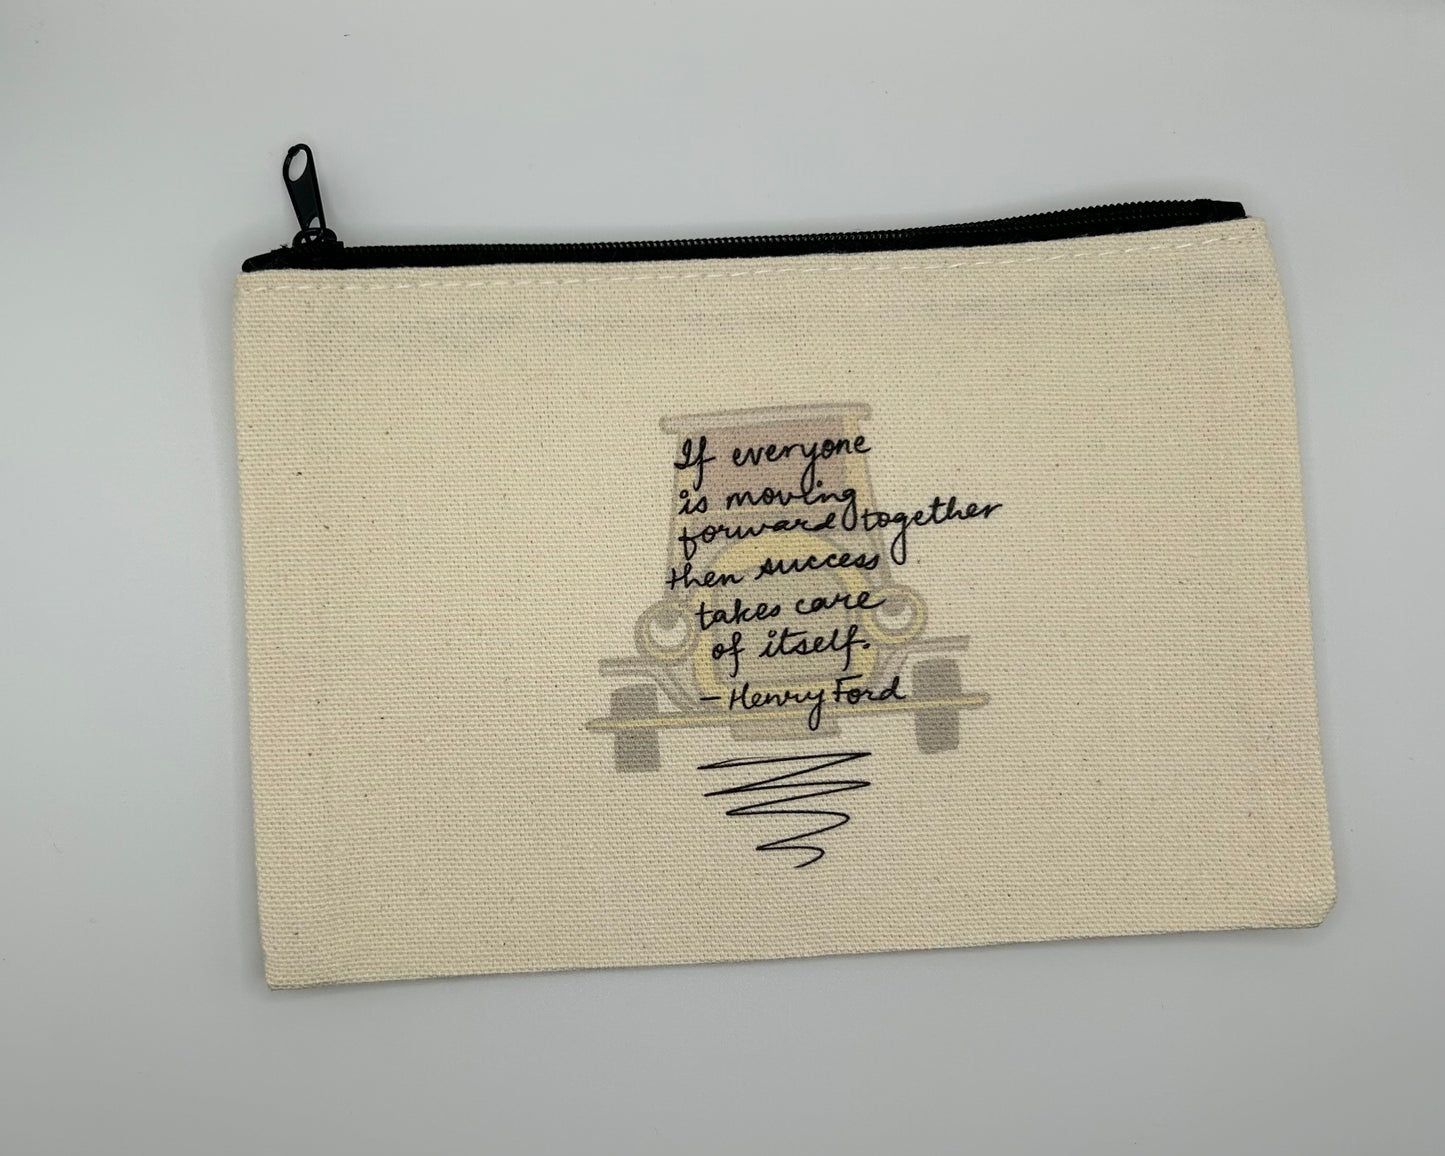 If everyone
is moving
forward together
then success
takes care
of itself.
- Henry Ford